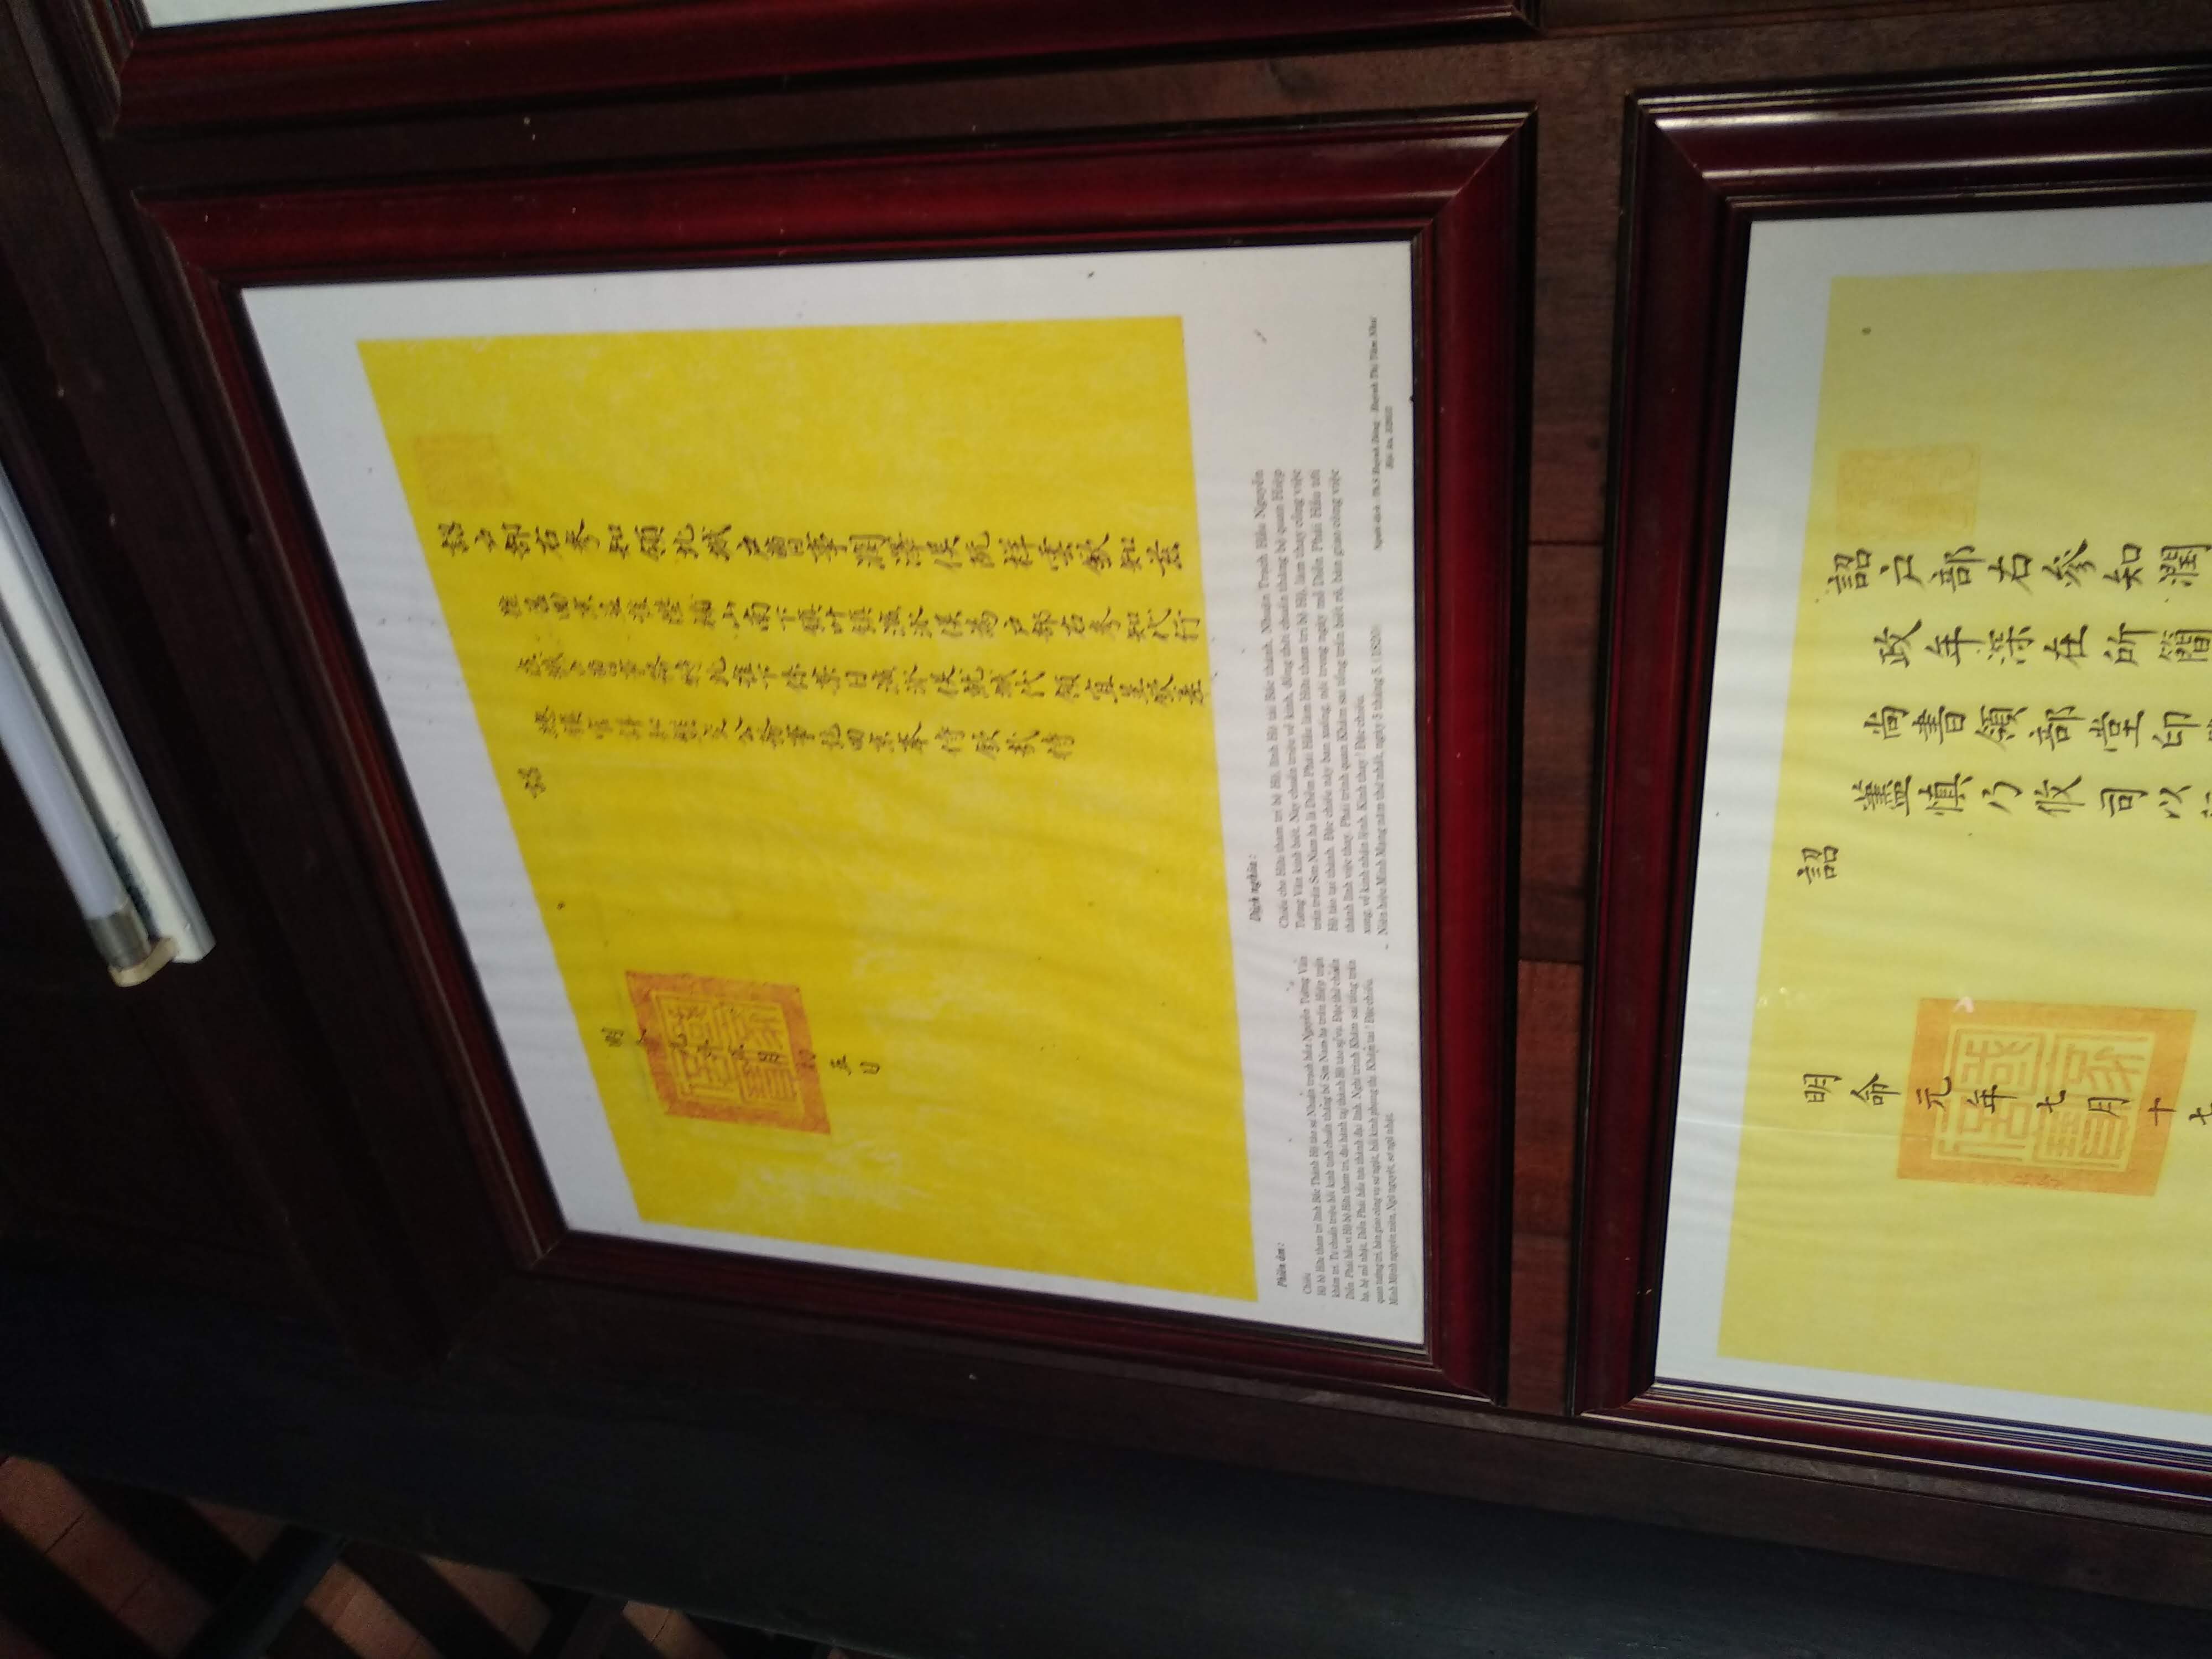 詔户部右參知領北城户曹事潤澤侯阮祥雲欽知兹
准召回京並准陞補山南下鎮叶鎮 侯為户部右參知代行
在城户曹事務特此准下係某日 侯就城代領宜呈欽差
總鎮官詳知 交公務事訖回京奉侍欽哉特
詔
明命元年五月初五日
國家信寶
Phiên âm :
Chiếu
Hộ bộ Hữu tham tri lĩnh Bắc Thành Hộ tào sự Nhuận trạch hầu Nguyễn Tường Vân
khâm tri. Tư chuẩn triệu hồi kinh tịnh chuẩn thăng bổ Sơn Nam hạ trấn Hiệp trấn
Diễn Phái hầu vi Hộ bộ Hữu tham tri, đại hành tại thành Hộ tào sự vụ. Đặc thử chuẩn
hạ, hệ mỗ nhật, Diễn Phái hầu tựu thành đại lĩnh. Nghi trình Khâm sai tổng trấn
quan tường tri, bàn giao công vụ sự ngật, hồi kinh phụng thị. Khâm tai ! Đặc chiếu.
Minh Mệnh nguyên niên, Ngũ nguyệt, sơ ngũ nhật.
Dịch nghĩa :
Chiếu cho Hữu tham tri bộ Hộ, lĩnh Hộ tào Bắc thành, Nhuận Trạch Hầu Nguyễn
Tường Vân kính biết. Nay chuẩn triệu về kinh, đồng thời chuẩn thăng bổ quan Hiệp
trấn trấn Sơn Nam hạ là Diễm Phái Hầu làm Hữu tham tri bộ Hộ, làm thay công việc
Hộ tào tại thành. Đặc chiếu này ban xuống, nội trong ngày mỗ Diễm Phái Hầu tới
thành lĩnh việc thay. Phải trình quan Khâm sai tổng trấn biết rõ, bàn giao công việc
xong, về kinh nhận lệnh. Kính thay ! Đặc chiếu.
Niên hiệu Minh Mạng năm thứ nhất, ngày 5 tháng 5. (1820)
Người dịch : Th.S Huỳnh Dõng - Huỳnh Thị Tâm Như
Hội An,
詔户部右參知潤
政年深在所簡
尚書領部堂印
藎慎乃攸司以
詔
明命元年七月十七
國家信寶